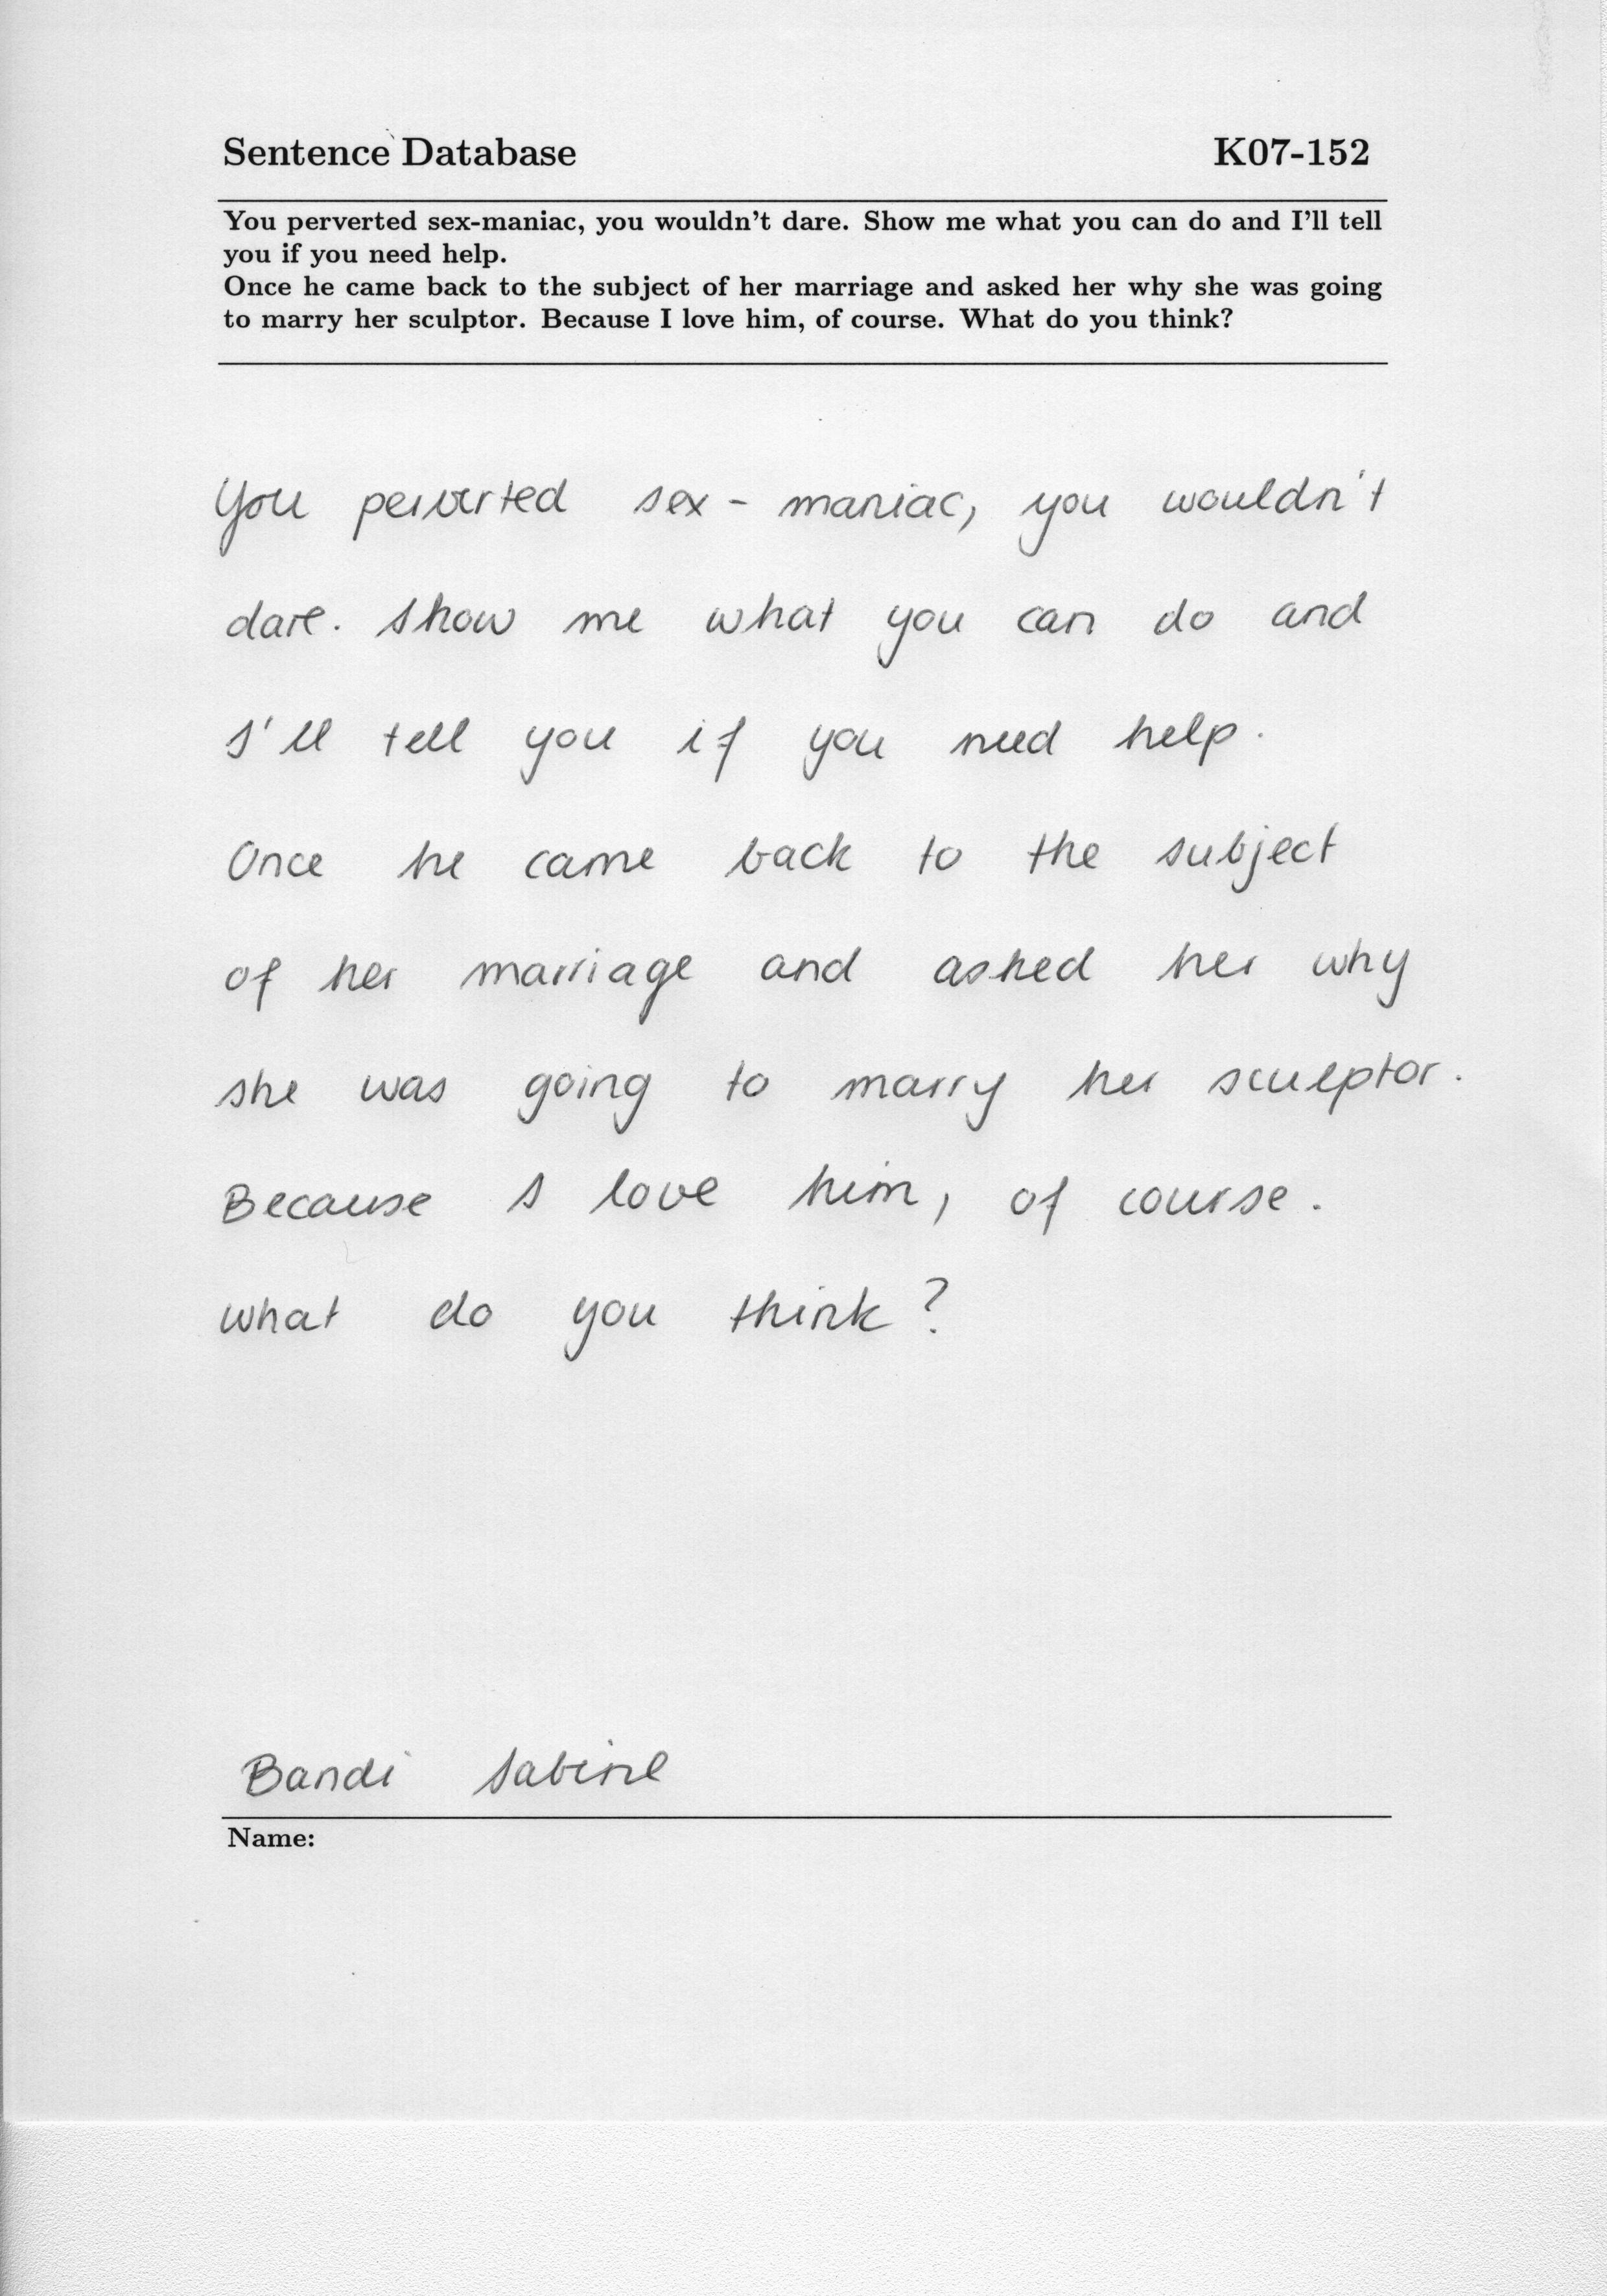 Sentence Database K07-152
You perverted sex-maniac, you wouldn't dare. Show me what you can do and I'll tell
you if you need help.
Once he came back to the subject of her marriage and asked her why she was going
to marry her sculptor. Because I love him, of course. What do you think?
You perverted sex - maniac, you wouldn't
dare. Show me what you can do and
I'll tell you if you need help.
Once he came back to the subject
of her marriage and asked her why
she was going to marry her sculptor.
Because I love him, of course.
what do you think?
Bandi Sabine
Name: